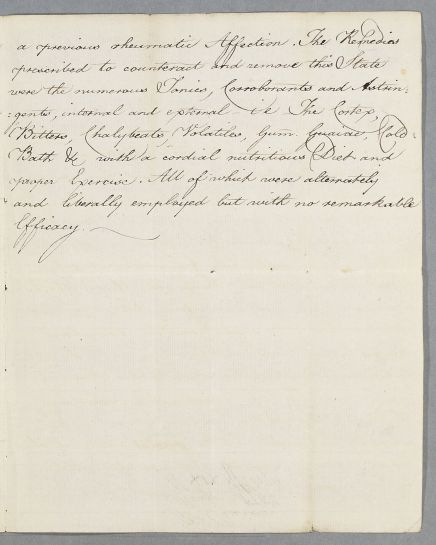 a previous rheumatic Affection. The Remedies
prescribed to counteract and remove this State
were the numerous Tonics, Corroborants and Astrin:
:gents, internal and external - i.e. The Cortex,
Bitters, Chalybeats, Volatiles, Gum. Guaiac, Cold
Bath &c with a cordial nutritious Diet and
proper Exercise. All of which were alternately
and liberally employed but with no remarkable
Efficacy.